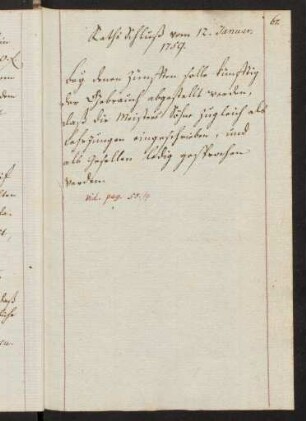 62
Raths Schluß vom 12. Januar.
1759.
Bey denen Zünfften solle künfftig
der Gebrauch abgestellt werden,
daß die Meisters Söhne zugleich als
Lehrjungen eingeschrieben, und
als Gesellen ledig gesprochen
werden.
vid. pag. 50.